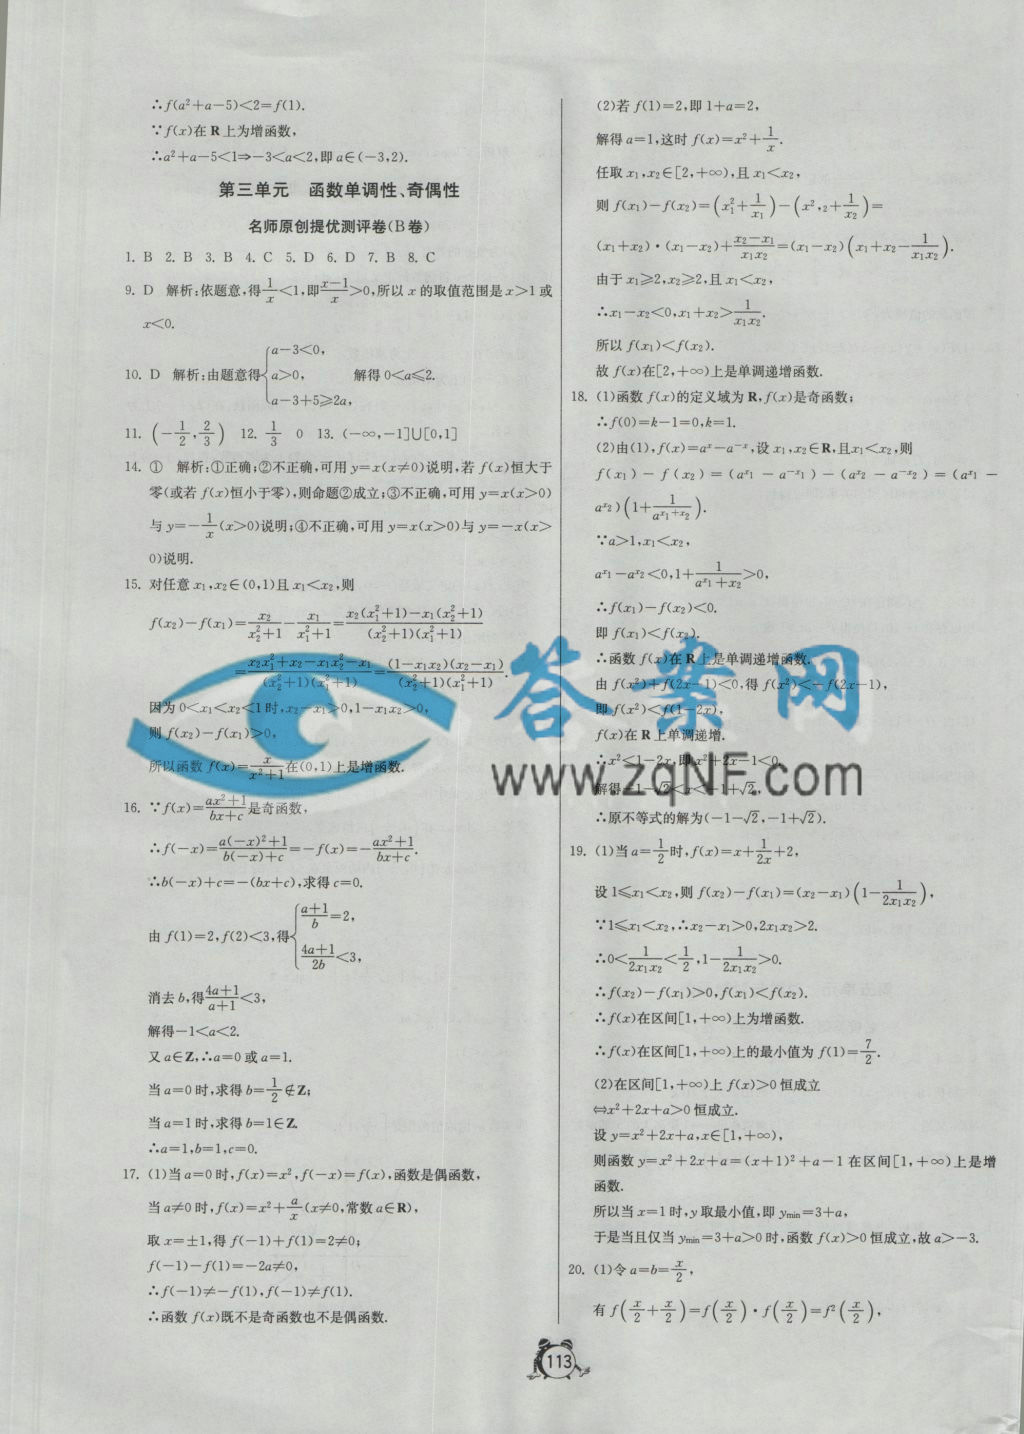 ∴f(a²+a−5)<2=f(1).
∵f(x)在 R 上为增函数,
∴a²+a−5<1⇒−3<a<2,即 a∈(−3,2).
第三单元 函数单调性、奇偶性
名师原创提优测评卷(B卷)
1. B 2. B 3. B 4. C 5. D 6. D 7. B 8. C
9. D 解析:依题意,得1/x<1,即(x−1)/x>0,所以 x 的取值范围是 x>1 或
x<0.
10. D 解析:由题意得{a−3<0, a>0, a−3+5≥2a, 解得 0<a≤2.
11. (−1/2,2/3) 12. 1/3 0 13. (−∞,−1]∪[0,1]
14. ① 解析:①正确;②不正确,可用 y=x(x≠0)说明,若 f(x)恒大于
零(或若 f(x)恒小于零),则命题②成立;③不正确,可用 y=x(x>0)
与 y=−1/x(x>0)说明;④不正确,可用 y=x(x>0)与 y=−x(x>
0)说明.
15. 对任意 x₁,x₂∈(0,1)且 x₁<x₂,则
f(x₂)−f(x₁)=x₂/(x₂²+1)−x₁/(x₁²+1)=[x₂(x₁²+1)−x₁(x₂²+1)]/[(x₂²+1)(x₁²+1)]
=[x₂x₁²+x₂−x₁x₂²−x₁]/[(x₂²+1)(x₁²+1)]=[(1−x₁x₂)(x₂−x₁)]/[(x₂²+1)(x₁²+1)].
因为 0<x₁<x₂<1 时,x₂−x₁>0,1−x₁x₂>0,
则 f(x₂)−f(x₁)>0,
所以函数 f(x)=x/(x²+1)在(0,1)上是增函数.
16. ∵f(x)=(ax²+1)/(bx+c)是奇函数,
∴f(−x)=[a(−x)²+1]/[b(−x)+c]=−f(x)=−(ax²+1)/(bx+c).
∴b(−x)+c=−(bx+c),求得 c=0.
由 f(1)=2,f(2)<3,得{(a+1)/b=2, (4a+1)/2b<3,
消去 b,得(4a+1)/(a+1)<3,
解得−1<a<2.
又 a∈Z,∴a=0 或 a=1.
当 a=0 时,求得 b=1/2∉Z;
当 a=1 时,求得 b=1∈Z.
∴a=1,b=1,c=0.
17. (1)当 a=0 时,f(x)=x²,f(−x)=f(x),函数是偶函数,
当 a≠0 时,f(x)=x²+a/x(x≠0,常数 a∈R),
取 x=±1,得 f(−1)+f(1)=2≠0;
f(−1)−f(1)=−2a≠0,
∴f(−1)≠−f(1),f(−1)≠f(1).
∴函数 f(x)既不是奇函数也不是偶函数.
(2)若 f(1)=2,即 1+a=2,
解得 a=1,这时 f(x)=x²+1/x.
任取 x₁,x₂∈[2,+∞),且 x₁<x₂,
则 f(x₁)−f(x₂)=(x₁²+1/x₁)−(x²,₂+1/x₂)=
(x₁+x₂)·(x₁−x₂)+(x₂−x₁)/(x₁x₂)=(x₁−x₂)(x₁+x₂−1/(x₁x₂)).
由于 x₁≥2,x₂≥2,且 x₁<x₂,
∴x₁−x₂<0,x₁+x₂>1/(x₁x₂).
所以 f(x₁)<f(x₂).
故 f(x)在[2,+∞)上是单调递增函数.
18. (1)函数 f(x)的定义域为 R,f(x)是奇函数;
∴f(0)=k−1=0,k=1.
(2)由(1),f(x)=aˣ−a⁻ˣ,设 x₁,x₂∈R,且x₁<x₂,则
f(x₁)−f(x₂)=(a^x₁−a^−x₁)−(a^x₂−a^−x₂)=(a^x₁−
a^x₂)(1+1/a^(x₁+x₂)).
∵a>1,x₁<x₂,
a^x₁−a^x₂<0,1+1/(a^x₁+x₂)>0,
∴f(x₁)−f(x₂)<0.
即 f(x₁)<f(x₂).
∴函数 f(x)在 R 上是单调递增函数.
由 f(x²)+f(2x−1)<0,得 f(x²)<−f(2x−1),
即 f(x²)<f(1−2x),
f(x)在 R 上单调递增.
∴x²<1−2x,即 x²+2x−1<0,
解得−1−√2<x<−1+√2,
∴原不等式的解为(−1−√2,−1+√2).
19. (1)当 a=1/2时,f(x)=x+1/2x+2,
设 1≤x₁<x₂,则 f(x₂)−f(x₁)=(x₂−x₁)(1−1/(2x₁x₂)),
∵1≤x₁<x₂,∴x₂−x₁>0,2x₁x₂>2.
∴0<1/(2x₁x₂)<1/2,1−1/(2x₁x₂)>0.
∴f(x₂)−f(x₁)>0,f(x₁)<f(x₂).
∴f(x)在区间[1,+∞)上为增函数.
∴f(x)在区间[1,+∞)上的最小值为 f(1)=7/2.
(2)在区间[1,+∞)上 f(x)>0 恒成立
⇔x²+2x+a>0 恒成立.
设 y=x²+2x+a,x∈[1,+∞),
则函数 y=x²+2x+a=(x+1)²+a−1 在区间[1,+∞)上是增
函数.
所以当 x=1 时,y 取最小值,即 ymin=3+a,
于是当且仅当 ymin=3+a>0 时,函数 f(x)>0 恒成立,故 a>−3.
20. (1)令 a=b=x/2,
有 f(x/2+x/2)=f(x/2)·f(x/2)=f²(x/2),
113
答案网
www.zqNF.com